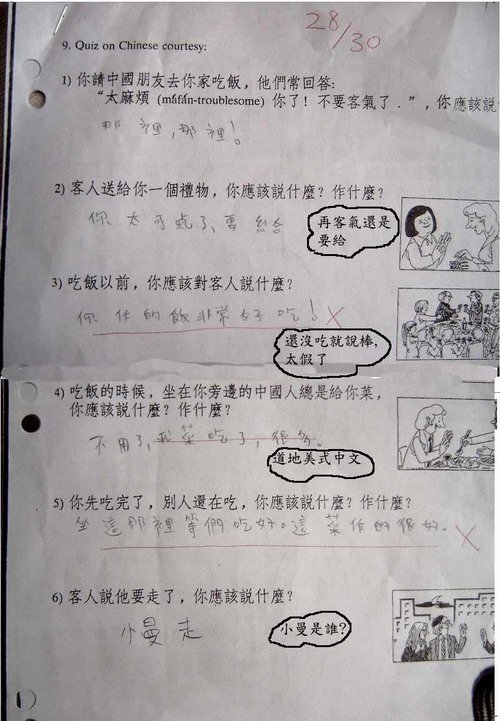 28/30
9. Quiz on Chinese courtesy:
1) 你請中國朋友去你家吃飯，他們常回答：
“太麻煩 (máfán-troublesome) 你了！不要客氣了．”，你應該說
那裡，那裡！
2) 客人送給你一個禮物，你應該說什麼？作什麼？
你太可
再客氣還是
要給
3) 吃飯以前，你應該對客人說什麼？
你作的飯非常好吃！ X
還沒吃就說棒，
太假了
4) 吃飯的時候，坐在你旁邊的中國人總是給你菜，
你應該說什麼？作什麼？
不用了，我菜吃了很多。
道地美式中文
5) 你先吃完了，別人還在吃，你應該說什麼？作什麼？
坐這那裡等們吃好。這菜作的很好。 X
6) 客人說他要走了，你應該說什麼？
小曼走
小曼是誰?